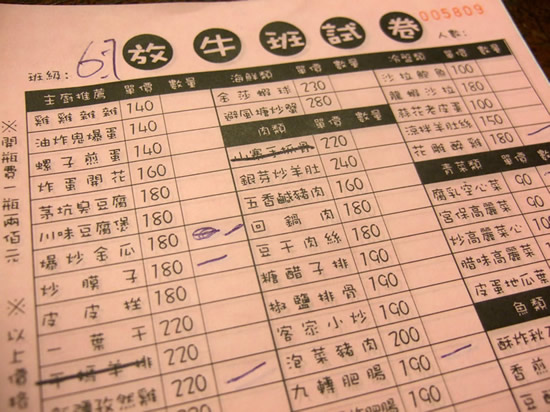 005809
放牛班試卷
班級: 67
人數:
主廚推薦 單價 數量
雞雞雞雞 140
油炸鬼爆蛋 140
螺子煎蛋 140
炸蛋開花 160
茅坑臭豆腐 180
川味豆腐煲 180
爆炒金瓜 180
炒膜子 180
皮皮挫 180
一葉干 220
220
220
海鮮類 單價 數量
金莎蝦球 230
避風塘炒蟹 280
肉類 單價 數量
山寨手扒骨 220
銀芽炒羊肚 240
五香鹹豬肉 160
回鍋肉 180
豆干肉絲 180
糖醋子排 190
椒鹽排骨 190
客家小炒 190
泡菜豬肉 200
九轉肥腸 190
冷盤類 單價 數量
沙拉鮑魚 100
龍蝦沙拉 180
蒜花老皮蛋 100
涼拌羊肚絲 150
花雕醉雞 180
青菜類 單價
腐乳空心菜 90
宮保高麗菜
炒高麗菜心
腊味高麗菜
皮蛋地瓜葉
魚類
酥炸秋
※開瓶費一瓶兩佰元
※以上價格